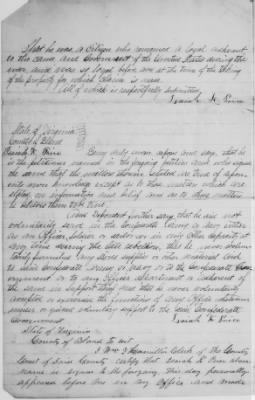 That he was a Citizen who remained a loyal adherent
to the cause and Government of the United States during the
war, and was so loyal before and at the time of the taking
of the property for which Claim is made.
All of which is respectfully submitted
Isaiah
State of Virginia
County of
Being duly sworn says and say, that he
is the petitioner named in the foregoing petition and who signed
the same that the matters therein stated are true of
own knowledge except as to those matters which are
on information and belief and as to those matters
he believes them to be true.
And deponent further say that he did not
voluntarily serve in the Confederate Army or Navy either
as an Officer, Soldier or sailor or in any other capacity at
any time during the late rebellion, that he never
voluntarily furnished any stores supplies or other material aid
to said Confederate Army or Navy or to the Confederate
Government or to any Officer department or adherent of
the same in support thereof and that he never voluntarily
accepted or exercised the functions of any Office whatsoever
under or yielded voluntary support to the said Confederate
Government
Isaiah
State of Virginia
County of to wit
I Clerk of the County
Court of County certify that Isaiah whose
name is signed to the foregoing, this day personally
appeared before me in my Office and made